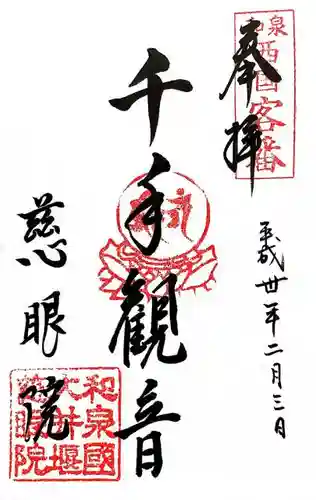 和泉
西国客番
奉拝
平成卅年二月三日
千手観音
慈眼院
和泉國
大井堰
慈眼院